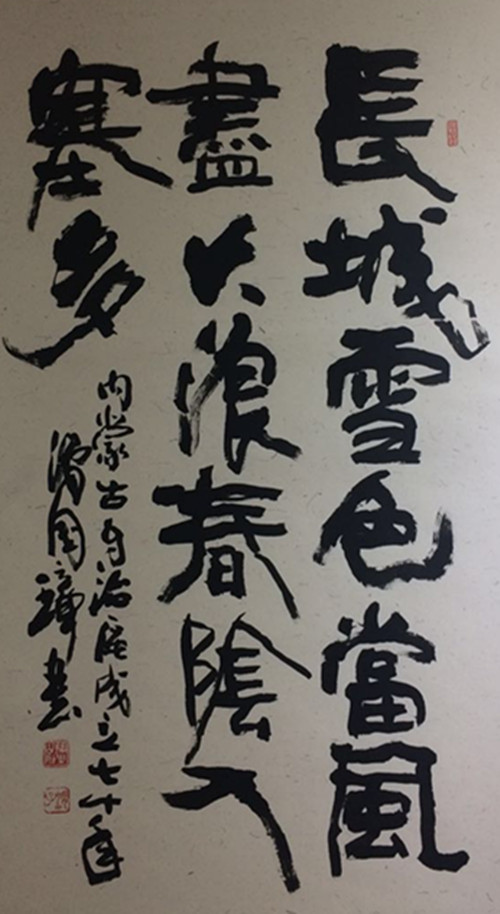 長城雪色當風
盡大浪春陰入
塞多
内蒙古自治區成立七十年
国璋書